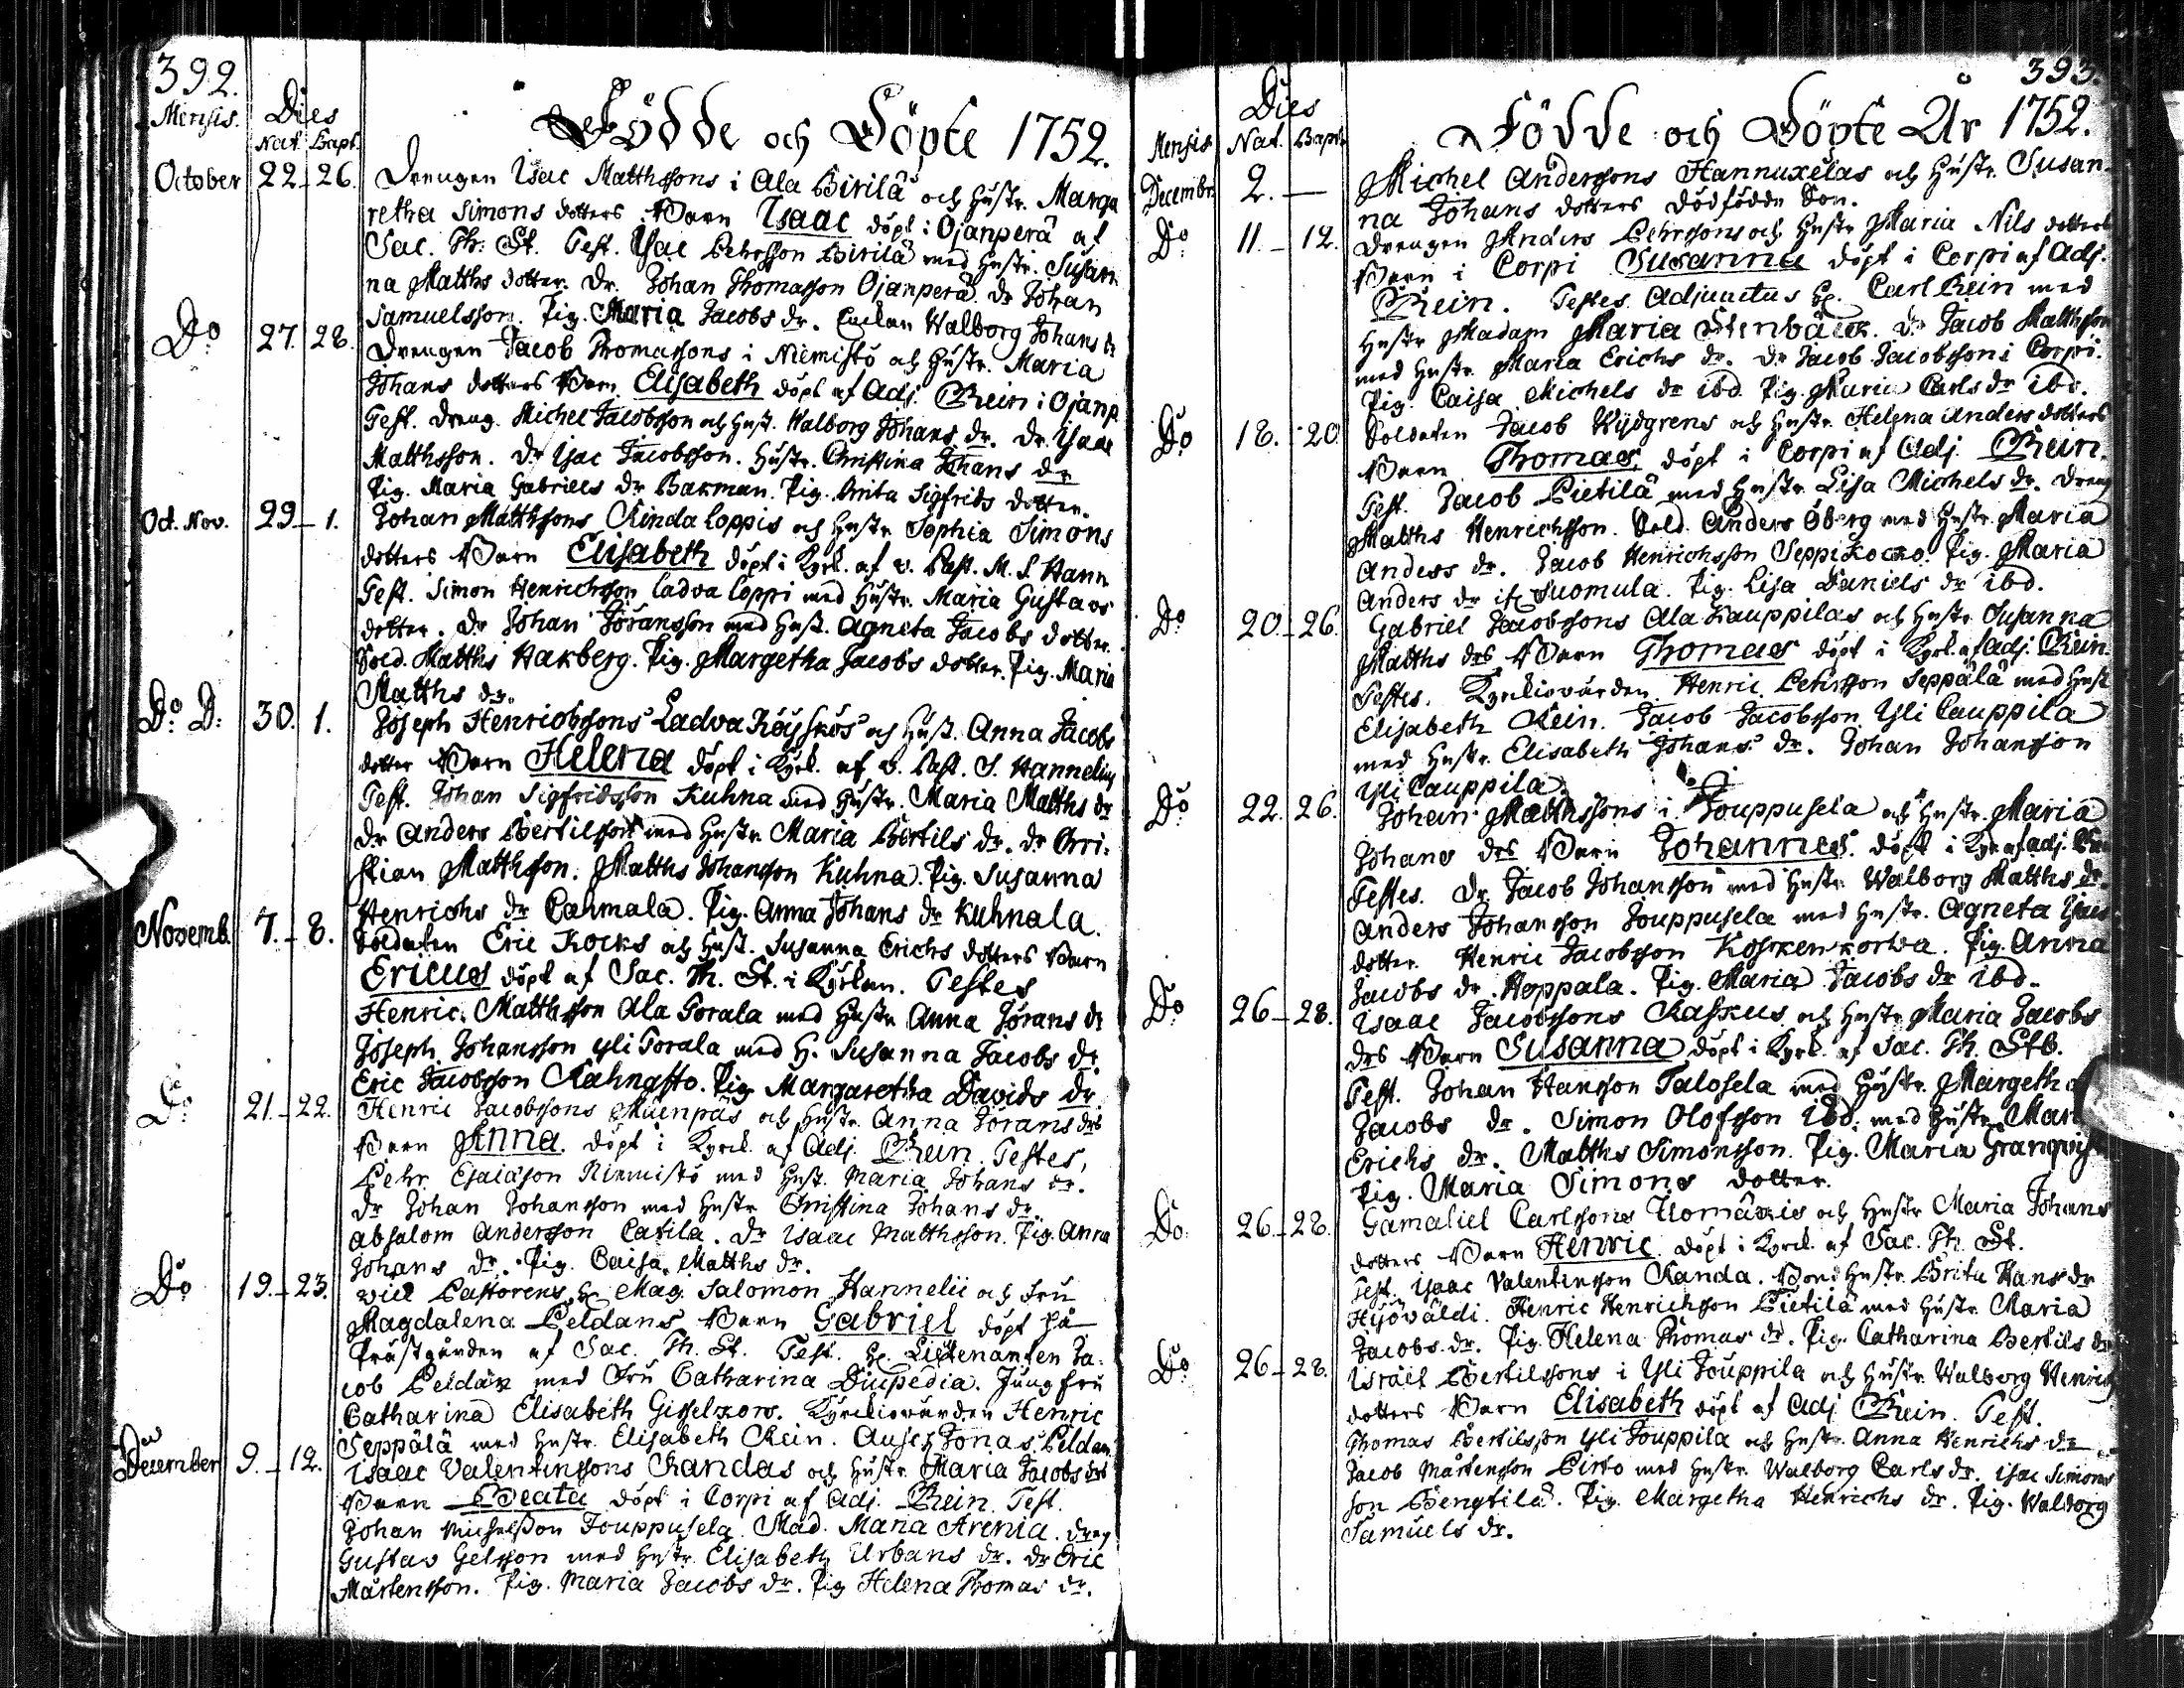 392.
Mensis. Dies
Nat. Bapt.
Födde och Döpte 1752.
October 22–26. Drengen Isac Matthssons i Ala Birilä och Hustr. Marga
retha Simons dotters Barn Isaac döpt i Ojanperä af
Sac. Th: St. Test. Isac Pehrsson Birilä med Hustr. Susan
na Matths dotter. Dr. Johan Thomasson Ojanperä. Dr Johan
Samuelsson. Pig. Maria Jacobs dr. Walborg Johans dr
Do 27. 28. Drengen Jacob Thomassons i Niemistö och Hustr. Maria
Johans dotters Barn Elisabeth döpt af Adj. Rein i Ojanp
Test. Dreng. Michel Jacobsson och Hust. Walborg Johans dr. Dr. Isaac
Matthsson. Dr Isac Jacobsson. Hustr. Christina Johans dr
Pig. Maria Gabriels dr Barman. Pig. Anita Sigfrids dotter.
Oct. Nov. 29–1. Johan Matthssons Rinda Loppis och Hustr Sophia Simons
dotters Barn Elisabeth döpt i Kyrk. af v. Past. M. S. Hann
Test. Simon Henrichsson Ladva Loppi med Hustr. Maria Gustavs
dotter. Dr Johan Jöransson med Hust. Agneta Jacobs dotter.
Sold. Matths Harberg. Pig. Margetha Jacobs dotter. Pig. Maria
Matths dr.
Do D: 30. 1. Joseph Henrichssons Ladva Köyskös och Hust. Anna Jacobs
dotter Barn Helena döpt i Kyrk. af v. Past. S. Hannelius
Test. Johan Sigfridsson Kuhna med Hustr. Maria Matths dr
Dr Anders Bertilsson med Hustr Maria Bertils dr. Dr Chri-
stian Matthsson. Matths Johansson Kuhna. Pig. Susanna
Henrichs dr Cahmala. Pig. Anna Johans dr Kuhnala.
Novemb. 7.–8. Soldaten Eric Kocks och Hust. Susanna Erichs dotters Barn
Ericus döpt af Sac. Th. St. i Kyrkan. Testes
Henric Matthsson Ala Torala med Hustr Anna Jörans dr
Joseph Johansson Yli Torala med H. Susanna Jacobs dr.
Eric Jacobsson Rahnasto. Pig. Margaretha Davids dr
Do 21.–22. Henric Jacobssons Müenpäs och Hustr. Anna Jörans drs
Barn Anna. döpt i Kyrck. af Adj. Rein. Testes,
Pehr Esaiasson Niemistö med Hust. Maria Johans dr.
Dr Johan Johansson med Hustr Christina Johans dr.
Absalom Andersson Catila. Dr Isaac Matthsson. Pig. Anna
Johans dr. Pig. Caisa Matths dr.
Do 19.–23. Vice Pastorens H. Mag. Salomon Hannelii och Fru
Magdalena Peldans Barn Gabriel döpt på
Prästgården af Sac. Th. St. Test. H. Lieutenanten Ja-
cob Peldan med Fru Catharina Diupedia. Jungfru
Catharina Elisabeth Gisselkors. Kyrckiovärden Henric
Seppälä med Hustr. Elisabeth Rein. Jonas Peldan
December 9.–12. Isaac Valentinssons Randas och Hustr. Maria Jacobs drs
Barn Beata döpt i Corpi af Adj. Rein. Test.
Johan Michelsson Jouppusela. Mad. Maria Arenia. dreng
Gustav Gelsson med Hustr. Elisabeth Urbans dr. Dr Eric
Mårtensson. Pig. Maria Jacobs dr. Pig Helena Thomas dr.
393.
Dies
Mensis Nat. Bapt.
Födde och Döpte År 1752.
Decembr. 2.– Michel Anderssons Hannuxelas och Hustr. Susan-
na Johans dotters dödfödde Son.
Do 11.–12. Drengen Anders Pehrssons och Hustr Maria Nils dotters
Barn i Corpi Susanna döpt i Corpi af Adj.
Rein. Testes. Adjunctus H. Carl Rein med
Hustr Madam Maria Stenbäck. Dr Jacob Matthsson
med Hustr. Maria Erichs dr. Dr Jacob Jacobsson i Corpi.
Pig. Caisa Michels dr ibd. Pig. Maria Carls dr ibd.
Do 18.–20. Soldaten Jacob Rydgrens och Hustr. Helena Anders dotters
Barn Thomas döpt i Corpi af Adj. Rein.
Test. Jacob Pietilä med Hustr Lisa Michels dr. Dreng
Matths Henrichsson. Sold. Anders Öberg med Hustr. Maria
Anders dr. Jacob Henrichsson Seppikocko. Pig. Maria
Anders dr Suomula. Pig. Lisa Daniels dr ibd.
Do 20–26. Gabriel Jacobssons Ala Kauppilas och Hustr Susanna
Matths drs Barn Thomas döpt i Kyrk. af Adj. Rein
Testes. Kyrckiovärden Henric Pehrsson Seppälä med Hust
Elisabeth Rein. Jacob Jacobsson Yli Cauppila
med Hustr. Elisabeth Johans dr. Johan Johansson
Yli Cauppila.
Do 22. 26. Johan Matthssons i Jouppusela och Hustr. Maria
Johans drs Barn Johannes döpt i Kyrk af Adj. Re
Testes. Dr Jacob Johansson med Hustr. Walborg Matths dr.
Anders Johansson Jouppusela med Hustr. Agneta Isacs
dotter. Henric Jacobsson Koskenkorva. Pig. Anna
Jacobs dr. Hoppala. Pig. Maria Jacobs dr ibd.
Do 26–28. Isaac Jacobssons Raskus och Hustr Maria Jacobs
drs Barn Susanna döpt i Kyrk. af Sac. Th. Stb.
Test. Johan Hansson Talosela med Hustr. Margeth
Jacobs dr. Simon Olofsson ibd. med Hustr Mar
Erichs dr. Matths Simonsson. Pig. Maria Granqvist
Pig. Maria Simons dotter.
Do 26–28. Gamaliel Carlssons Uomäkis och Hustr Maria Johans
dotters Barn Henric döpt i Kyrck. af Sac. Th. St.
Test. Isaac Valentinsson Randa. Hustr. Brita Hans dr
Hyöväldi. Henric Henrichsson Pietilä med Hustr. Maria
Jacobs dr. Pig. Helena Thomas dr. Pig. Catharina Bertils dr
Do 26–28. Israel Bertilssons i Yli Jouppila och Hustr. Walborg Henrichs
dotters Barn Elisabeth döpt af Adj Rein. Test.
Thomas Bertilsson Yli Jouppila och Hustr. Anna Henrichs dr
Jacob Mårtensson Pirto med Hustr. Walborg Carls dr. Isac Simons
son Bengtila. Pig. Margetha Henrichs dr. Pig. Walborg
Samuels dr.